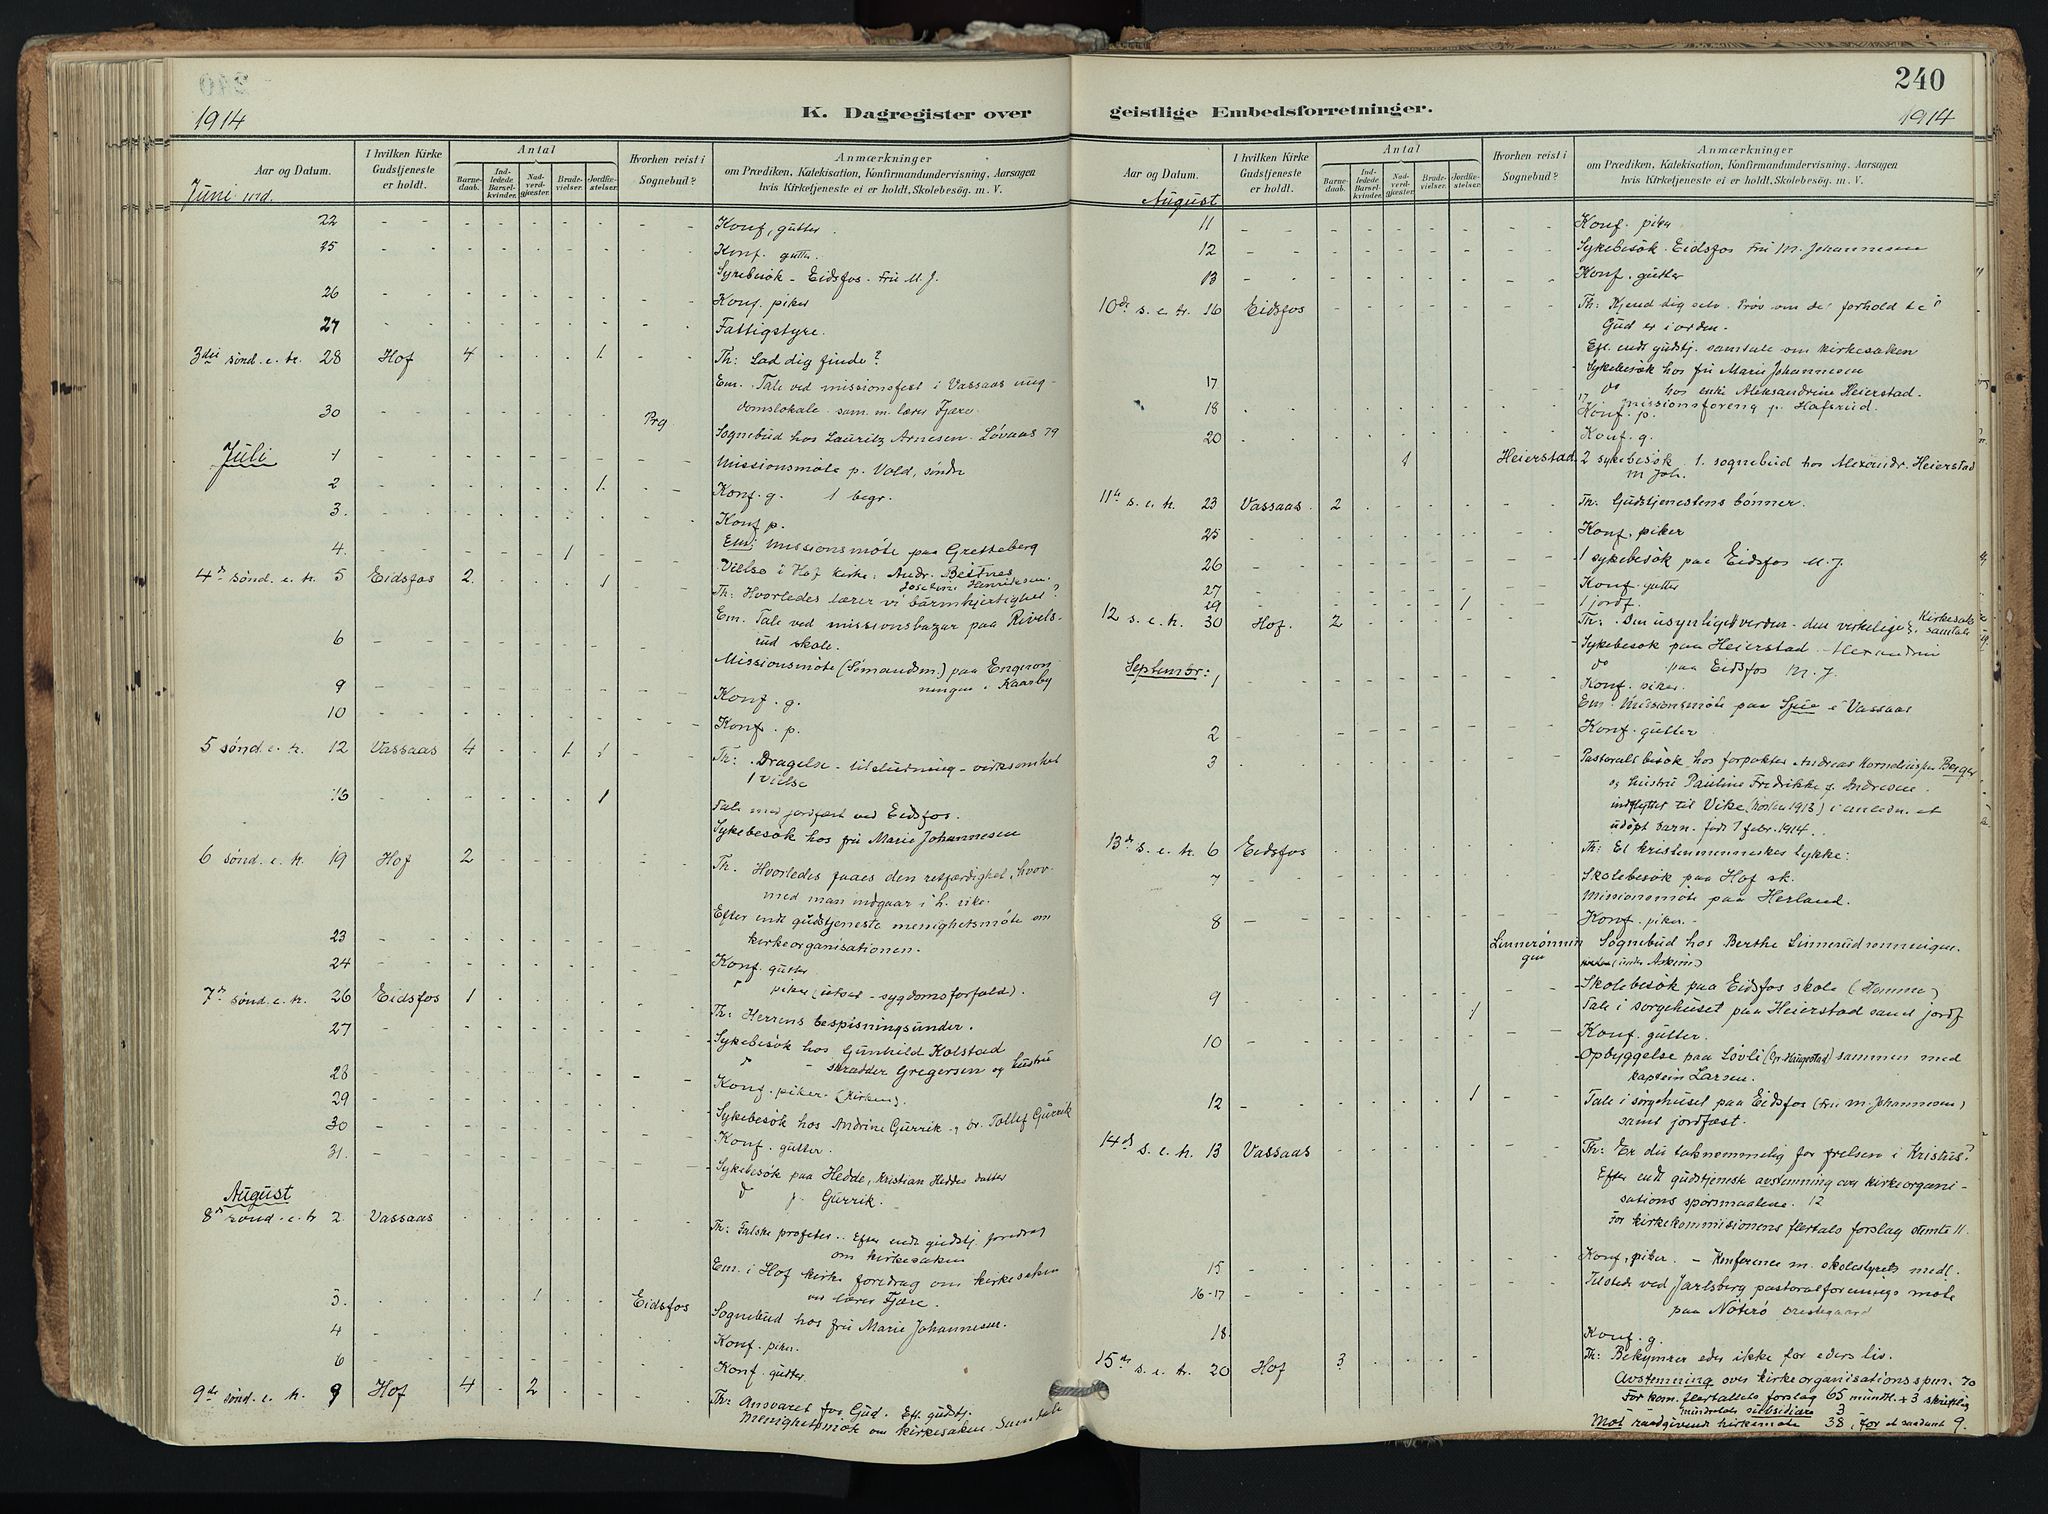 240
1914
K. Dagregister over
Aar og Datum.
I hvilken Kirke Gudstjeneste er holdt.
Antal
Barnedaab.
Indledede Barselkvinder.
Nadverdgjæster.
Brudevielser.
Jordfæstelser.
Hvorhen reist i Sognebud?
Anmærkninger
om Prædiken, Katekisation, Konfirmandundervisning, Aarsagen
hvis Kirketjeneste ei er holdt, Skolebesøg. m. V.
Juni
22 Konf, gutter.
25 Konf. gutter.
Sykebesök - Eidsfos. Fru M. J.
26 Konf. piker
27 Fattigstyre.
3die sønd. e. tr. 28 Hof 4 1. Th: Lad dig finde?
Em. Tale ved missionsfest i Vassaas ung-
domslokale sam. m. lærer Fjære.
30 Prg. Sognebud hos Lauritz Arnesen. Løvaas 79
Juli 1 Missionsmöte p. Vold, søndre
2 1. Konf. g. 1 begr.
3. Konf p.
4. 1 Em: Missionsmöte paa Gretteberg
Vielse i Hof kirke: Andr. Bettnes
Josefine Henriksen.
4de sønd. e. tr. 5 Eidsfos 2. 1 Th: Hvorledes lærer vi barmhjertighet?
Em. Tale ved missionsbazar paa Rivels-
rud skole.
6 Missionsmöte (Sömandsm.) paa Engeron
ningen i Kaarby
9 Konf. g.
10 Konf. p.
5 sønd. e. tr. 12 Vassaas 4 1. 1 Th: Dragelse - tilslutning - virksomhet
1 vielse
13 1 Tale med jordfæst ved Eidsfos.
Sykebesök hos fru Marie Johannesen
6 sønd. e. tr. 19 Hof 2 Th. Hvorledes faaes den retfærdighet, hvor-
med man indgaar i h. rike.
Efter endt gudstjeneste menighetsmöte om
kirkeorganisationen.
23 Konf. gutter
24 piker (utsat - sygdomsforfald).
7de sønd. e. tr. 26 Eidsfos 1 Th: Herrens bespisningsunder.
27 Sykebesök hos Gunhild Kolstad
" - skrædder Gregersen og hustru
28 Konf. piker (Kirken).
29 Sykebesök hos Andrine Gurrik, br. Tollef Gurrik
30 Konf. gutter.
31. Sykebesök paa Hedde, Kristian Heddes datter
do p. Gurrik.
August
8de sønd. e. tr 2. Vassaas Th: Falske profeter.. Efter endt gudstj. foredrag
om kirkesaken
Em. i Hof kirke foredrag om kirkesaken
ved lærer Fjære.
3. 1 Eidsfos Sognebud hos fru Marie Johannesen.
4 Konf. piker.
6 Konf. gutter
9de sønd. e. tr. 9 Hof 4 2 Th: Ansvaret for Gud. Eft. gudstj.
Menighetsmöte om kirkesaken. Samtale
240
geistlige Embedsforretninger.
1914
Aar og Datum.
I hvilken Kirke Gudstjeneste er holdt.
Antal
Barnedaab.
Indledede Barselkvinder.
Nadverdgjæster.
Brudevielser.
Jordfæstelser.
Hvorhen reist i Sognebud?
Anmærkninger
om Prædiken, Katekisation, Konfirmandundervisning, Aarsagen
hvis Kirketjeneste ei er holdt, Skolebesøg. m. V.
August
11 Konf. piker
12 Sykebesök. Eidsfos Fru M. Johannesen
13 Konf. gutter
10de s. e. tr. 16 Eidsfos Th: Kjend dig selv. Prøv om dit forhold til
Gud er i orden.
Eft. endt gudstj. samtale om kirkesaken
17 Sykebesök hos fru Marie Johannesen
do hos enke Aleksandrine Heierstad.
17 missionsforeng p. Hafsrud.
18 Konf. p.
20 Konf. g.
1 Heierstad. 2 sykebesök 1. sognebud hos Alexandr. Heierstad
M Joh.
11te s. e. tr. 23 Vassaas 2 Th: Gudstjenestens bönner.
25 Konf. piker
26 1 sykebesök paa Eidsfos M. J.
27 Konf. gutter
29 1 1 jordf.
12 s. e. tr. 30 Hof. 2 Th: Den usynlige verden - den virkelige. Kirkesak
samtale
Sykebesök paa Heierstad
do paa Eidsfos M. J.
September:
1 Konf. piker.
Em. Missionsmöte paa Sjue i Vassaas
2 Konf. gutter
3 Pastoralbesök hos forpakter Andreas Korneliussen Berger
og hustru Pauline Fredrikke f. Andresen.
indflyttet til Vike (hösten 1913) i anledn. et
udöpt barn. født 7 febr. 1914.
13de s. e. tr. 6 Eidsfos Th: Et kristenmenneskes lykke:
7 Skolebesök paa Hof sk.
Missionsmöte paa Herland.
8 Konf. piker.
Linnerønnin gen Sognebud hos Berthe Linnerudrønningen.
(under Askim)
9 Skolebesök paa Eidsfos skole (Hamme)
1 Tale i sorgehuset paa Heierstad samt jordf
10 Konf. gutter.
Opbyggelse paa Løvli (pr. Haugestad) sammen med
kaptein Larsen.
12 1 Tale i sörgehuset paa Eidsfos (Fru M. Johannesen)
samt jordfæst.
14de s. e. tr. 13 Vassaas Th: Er du taknemmelig for frelsen i Kristus?
Efter endt gudstjeneste avstemning over kirkeorgani-
sations spörsmaalene. 12
For kirkekommissionens flertals forslag stemte 11.
15 Konf. piker. - Konference m. skolestyrets medl.
16-17 Tilstede ved Jarlsberg pastoralforenings möte
paa Nöterö prestegaard
18. Konf. g.
15de s. e. tr. 20 Hof 3 Th: Bekymrer eder ikke for eders liv.
Avstemning over kirkeorganisationsspm. 70
For kom. flertallets forslag 65 mundtl. + 3 skriftlig
mindretals subsidiære 3
Mot raadgivende kirkemöte 38, for et saadant 9.